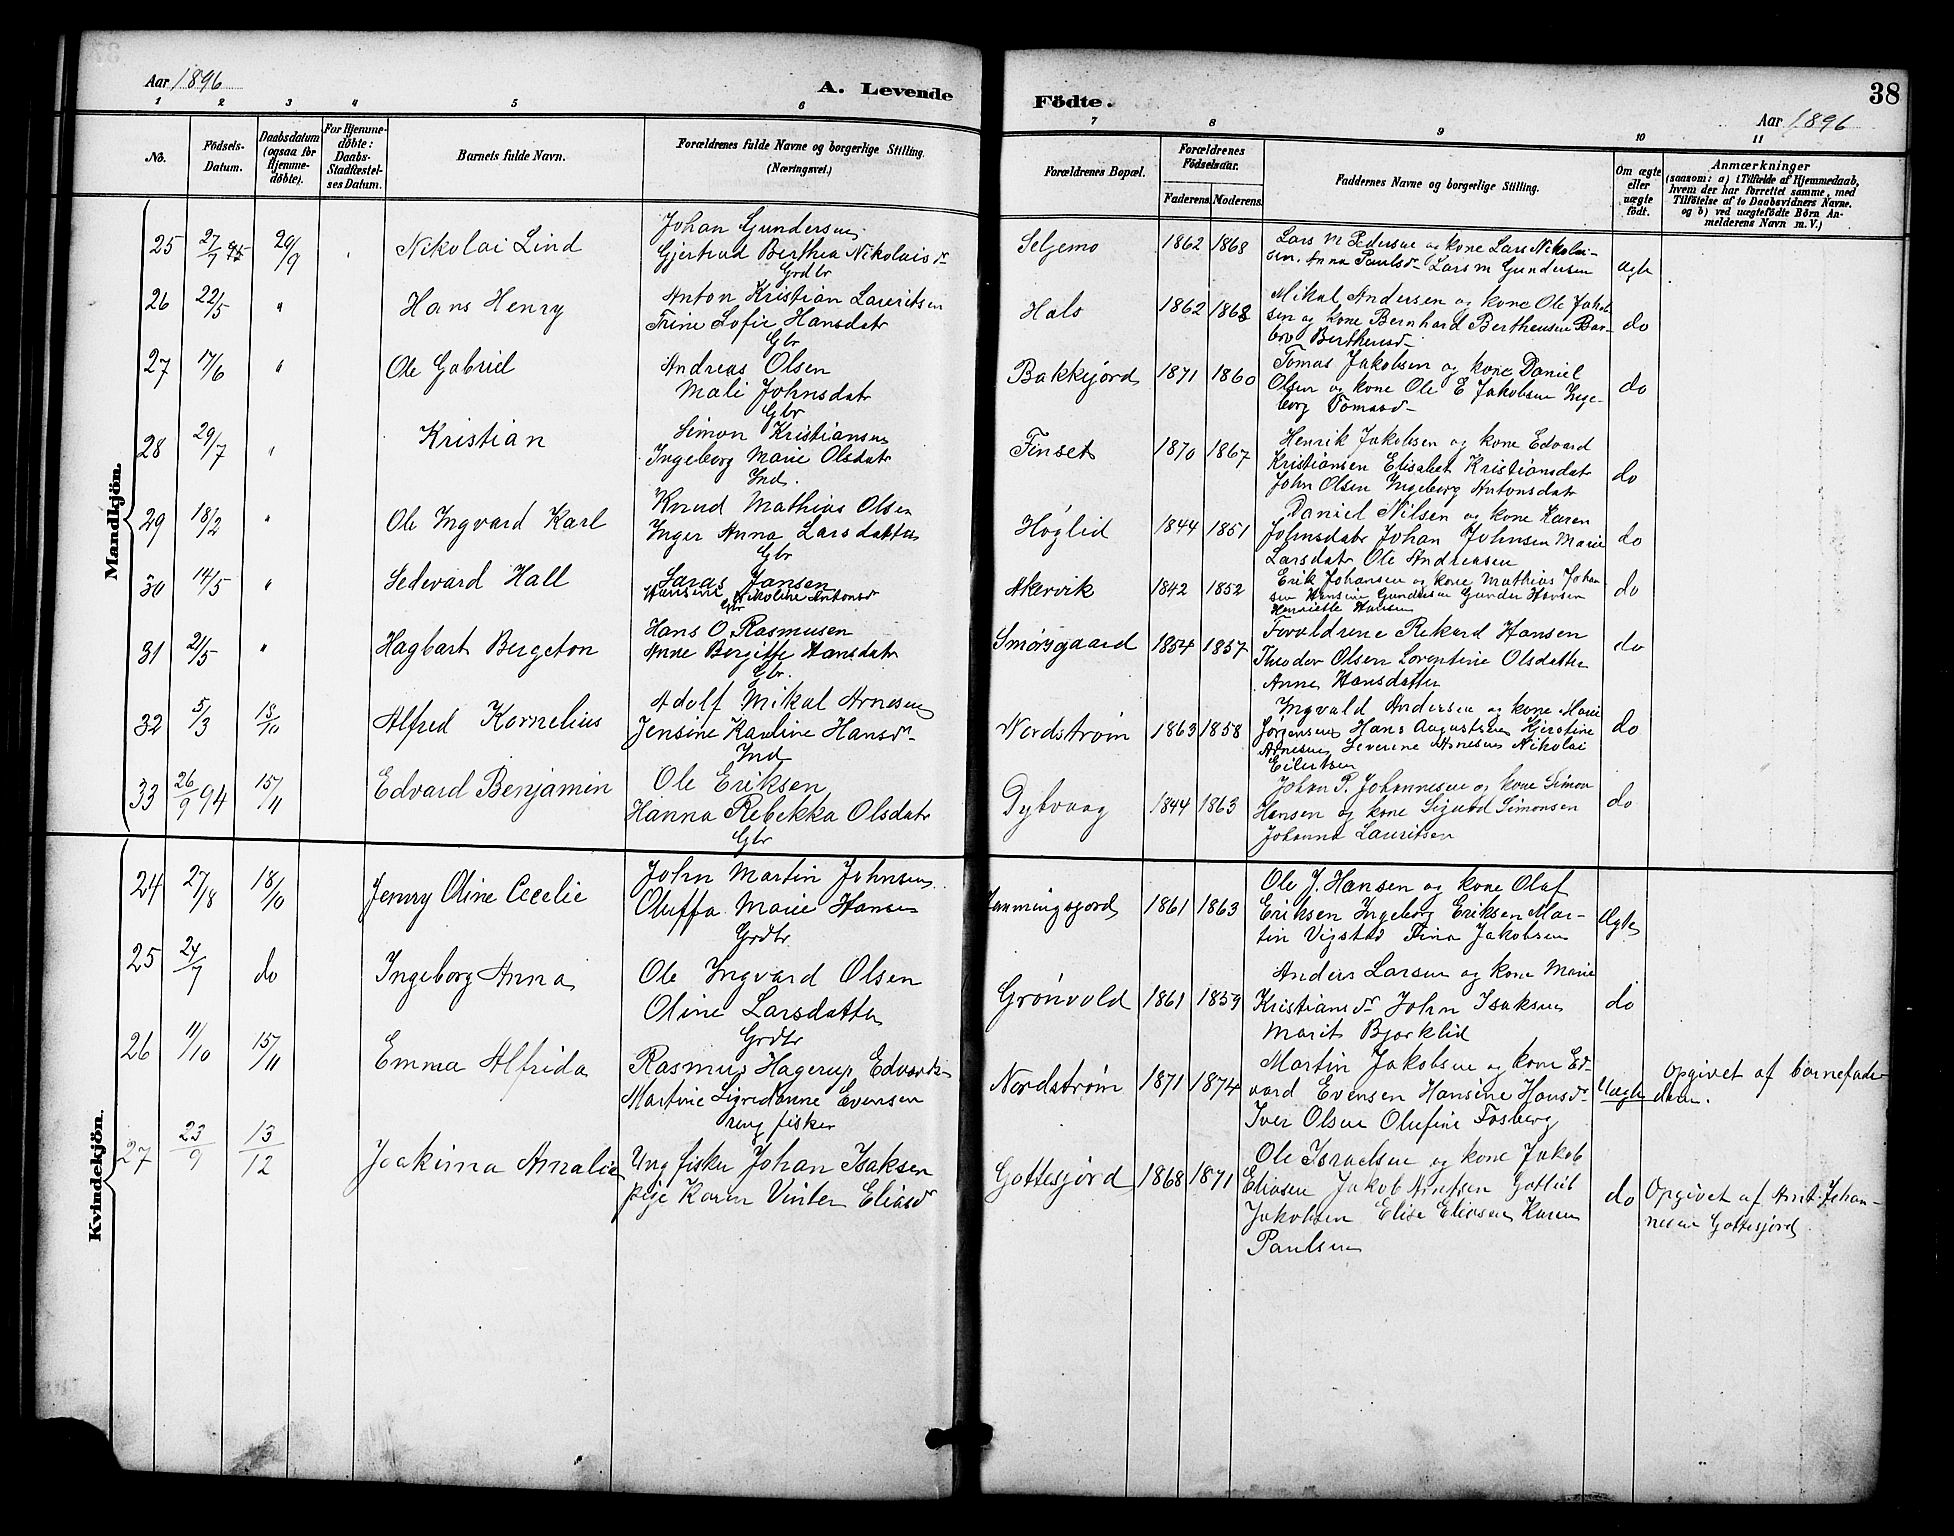 Aar 1896
A. Levende
1 2 3 4 5 6
No.
Födsels-Datum.
Daabsdatum (ogsaa for Hjemme-döbte).
For Hjemme-döbte: Daabs-Stadfæstel-ses Datum.
Barnets fulde Navn.
Forældrenes fulde Navne og borgerlige Stilling. (Næringsvei.)
Mandkjön.
25 27/7 95 20/9 Nikolai Lind
Johan Gundersen
Gjertrud Berthea Nikolaisdr
Grdbr
26 22/5 " Hans Henry
Anton Kristian Lauritsen
Trine Sofie Hansdatr
Gbr
27 17/6 " Ole Gabriel
Andreas Olsen
Mali Johnsdatr
Gbr
28 29/7 " Kristian
Simon Kristiansen
Ingeborg Marie Olsdatr
Ind.
29 18/2 " Ole Ingvard Karl
Knud Mathias Olsen
Inger Anna Larsdatter
Gbr
30 14/5 " Sedevard Hall
Saras Jansen
Hansine Nikoline Antonsdr
Gbr
31 21/5 " Hagbart Bergeton
Hans O. Rasmusen
Anne Bergitte Hansdatr
Gbr.
32 5/3 18/10 Alfred Kornelius
Adolf Mikal Arnesen
Jensine Karline Hansdr
Ind
33 26/9 94 15/11 Edvard Benjamin
Ole Eriksen
Hanna Rebekka Olsdatr
Gbr
Kvindekjön.
24 27/8 18/10 Jenny Oline Cecelie
John Martin Johnsen
Oluffa Marie Hansen
Grdbr
25 24/7 do Ingeborg Anna
Ole Ingvard Olsen
Oline Larsdatter
Grdbr
26 11/10 15/11 Emma Alfrida
Rasmus Hagerup Edvards
Martine Sigridanne Evensen
ung fisker
27 23/9 13/12 Joakima Amalie
Ung fisker Johan Isaksen
pige Karen Vinter Eliasdr
Födte.
38
Aar 1896
7 8 9 10 11
Forældrenes Bopæl.
Forældrenes Födselsaar.
Faderens. Moderens.
Faddernes Navne og borgerlige Stilling.
Om ægte eller uægte födt.
Anmærkninger
(saasom: a) i Tilfælde af Hjemmedaab, hvem der har forrettet samme, med Tilföielse af to Daabsvidners Navne. og b) ved uægtefödte Börn An-melderens Navn m. V.)
Seljemo 1862 1868
Lars M Pedersen og kone Lars Nikolai-
sen. Anna Paulsdr Lars M Gundersen
ægte
Hals 1862 1868
Mikal Andersen og kone Ole Jakob
sen og kone Bernhard Bertheusen Bar-
bro Bertheusdr
do
Bakkejord 1871 1860
Tomas Jakobsen og kone Daniel
Olsen og kone Ole E Jakobsen Inge-
borg Tomasdr
do
Finset 1870 1867
Henrik Jakobsen og kone Edvard
Kristiansen Elisabet Kristiansdatr
John Olsen Ingeborg Antonsdatr
do
Høglid 1844 1851
Daniel Nilsen og kone Karen
Johnsdatr Johan Johnsen Marie
Larsdatr Ole Andreasen
do
Akervik 1842 1852
Erik Johansen og kone Mathias Johan
sen Hansine Gundersen Gunder Hansen
Henriette Hansen
do
Smørsgaard 1854 1857
Forældrene Rekard Hansen
Theodor Olsen Lorentine Olsdatter
Anne Hansdatter
do
Nordstrøm 1863 1858
Ingvald Andersen og kone Marie
Jørgensen Hans Augustsen Kjerstine
Arnesen Severine Arnesen Nikolai
Eilertsen
do
Dybvaag 1844 1863
Johan P. Johannesen og kone Simon
Hansen og kone Sigurd Simonsen
Johanna Lauritsen
do
1861 1863
Ole J. Hansen og kone Olaf
Eriksen Ingeborg Eriksen Mar-
tin Vigstad Fina Jakobsen
Ægte
Grønvold 1861 1859
Anders Larsen og kone Marie
Kristiansdr John Isaksen
Marit Bjørklid
do
Nordstrøm 1871 1874
Martin Jakobsen og kone Ed-
vard Evensen Hansine Hansdr
Iver Olsen Olufine Fosberg
Uægte
Opgivet af barnefade
deren.
Gottesjord 1868 1871
Ole Israelsen og kone Jakob
Eliasen Jakob Arntsen Gotlieb
Jakobsen Elise Eliasen Karen
Paulsen
do
Opgivet af Arnt Johan-
nesen Gottesjord